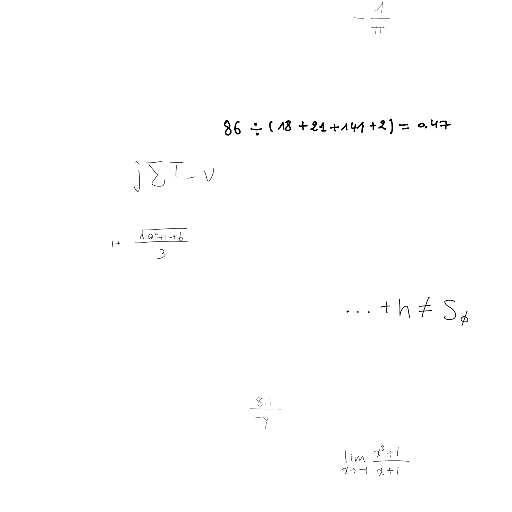 - 1/π
86 ÷ (18 + 21 + 141 + 2) = 0.47
j ∑ T - v
1+ √(a²+1+b)/3
... + h ≠ S_ϕ
8.1/-y
lim x→-1 (x³+1)/(x+1)